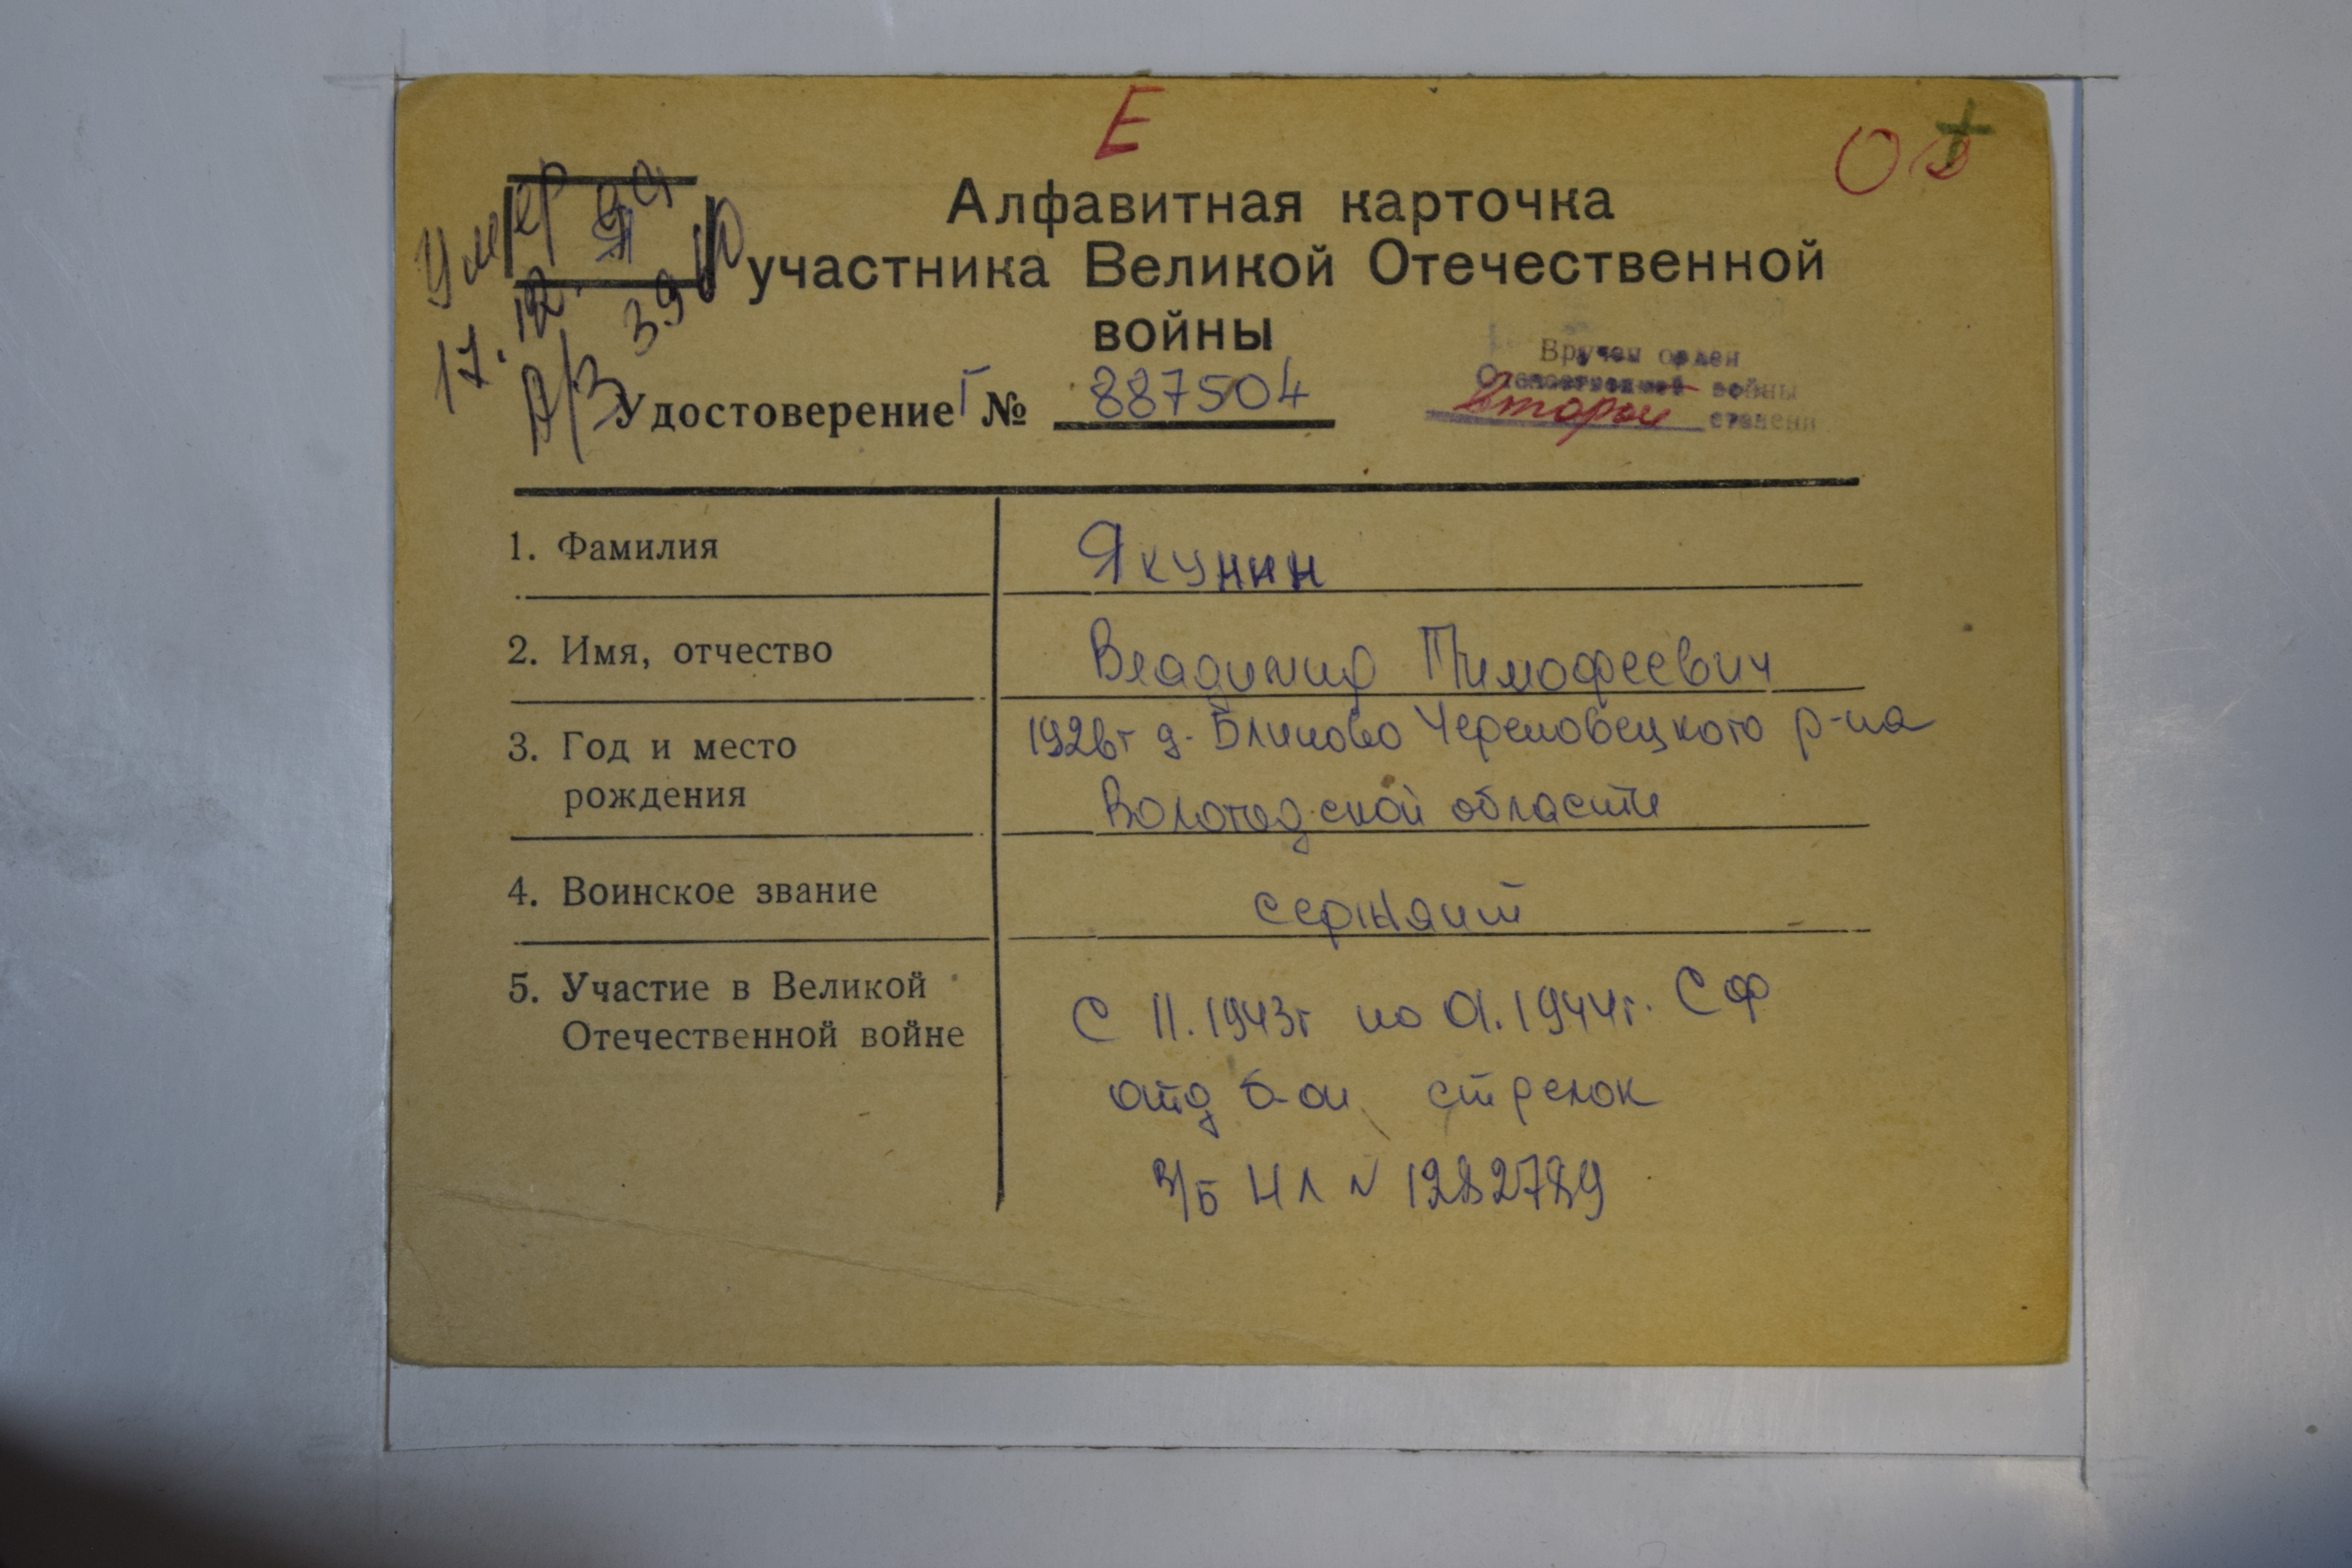 Е
О В
+
Умер
Я
17.12.
А/З 39
Алфавитная карточка
участника Великой Отечественной
войны
Вручен орден
Отечественной войны
второй степени
Удостоверение Г № 887504
1. Фамилия
Якунин
2. Имя, отчество
Владимир Тимофеевич
3. Год и место
рождения
1926г д. Блиново Череповецкого р-на
Вологодской области
4. Воинское звание
сержант
5. Участие в Великой
Отечественной войне
С 11.1943г по 01.1944г. СФ
отд б-он стрелок
В/Б НЛ № 1282789